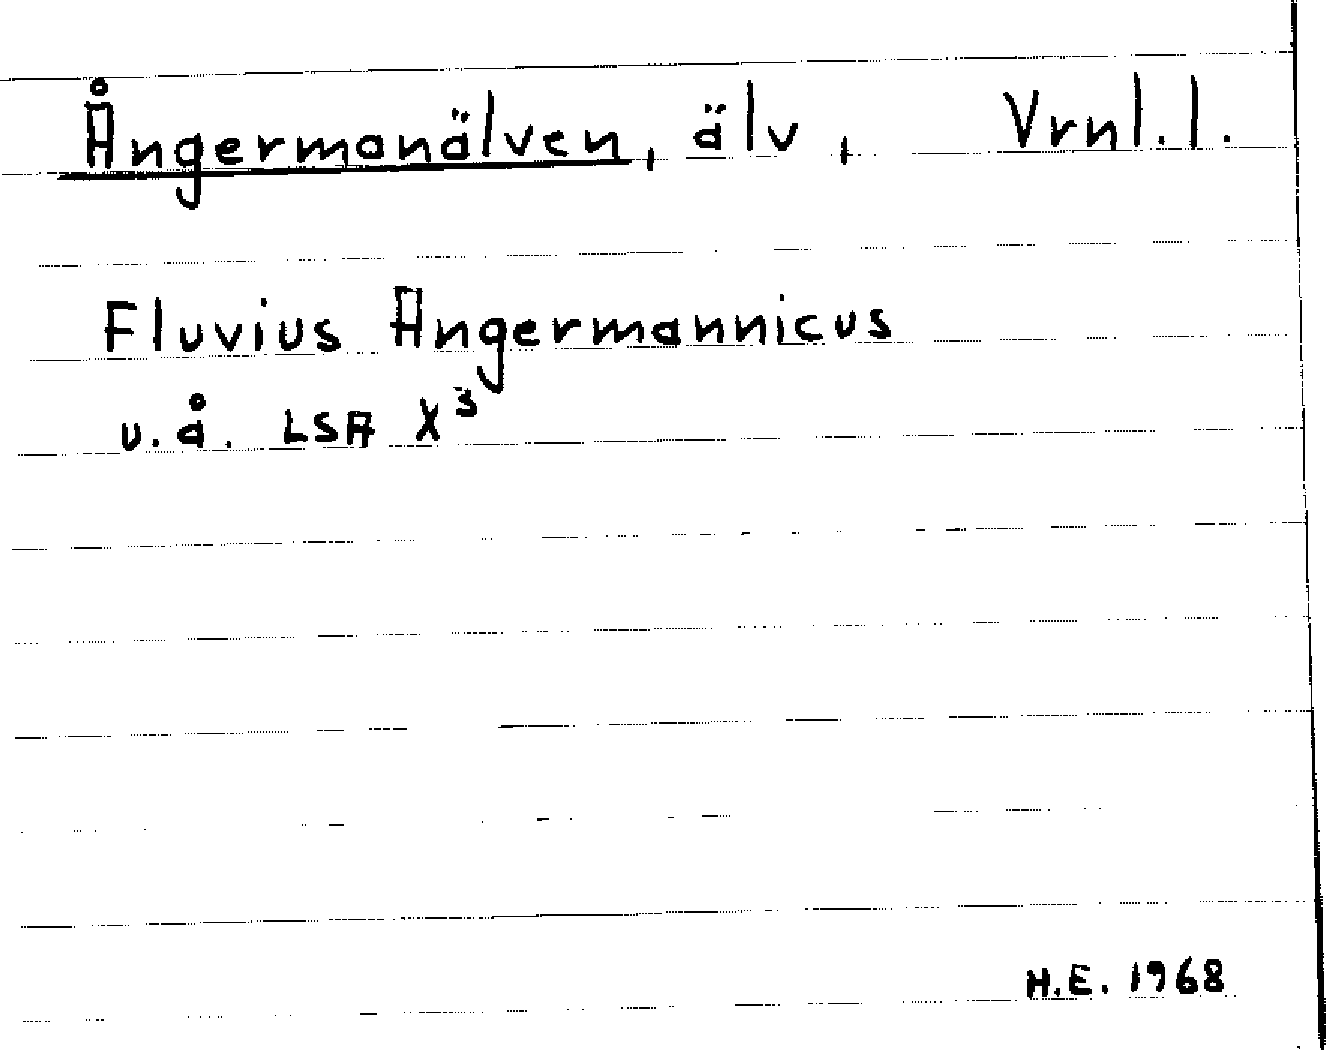 Ångermanälven, älv, Vrnl. l.
Fluvius Angermannicus
u.å. LSA X³
H.E. 1968